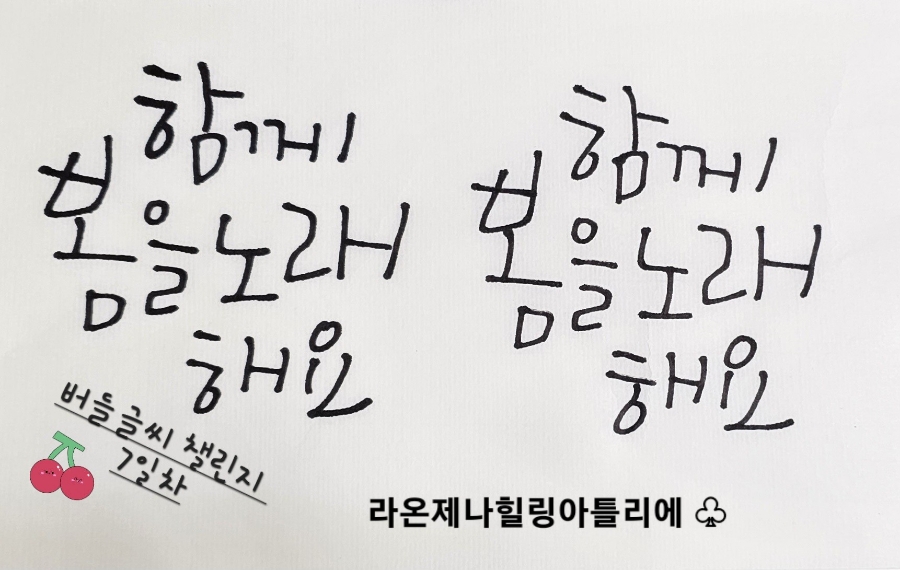 함께
봄을노래
해요
함께
봄을노래
해요
버들글씨 챌린지
7일차
라온제나힐링아틀리에 ♧